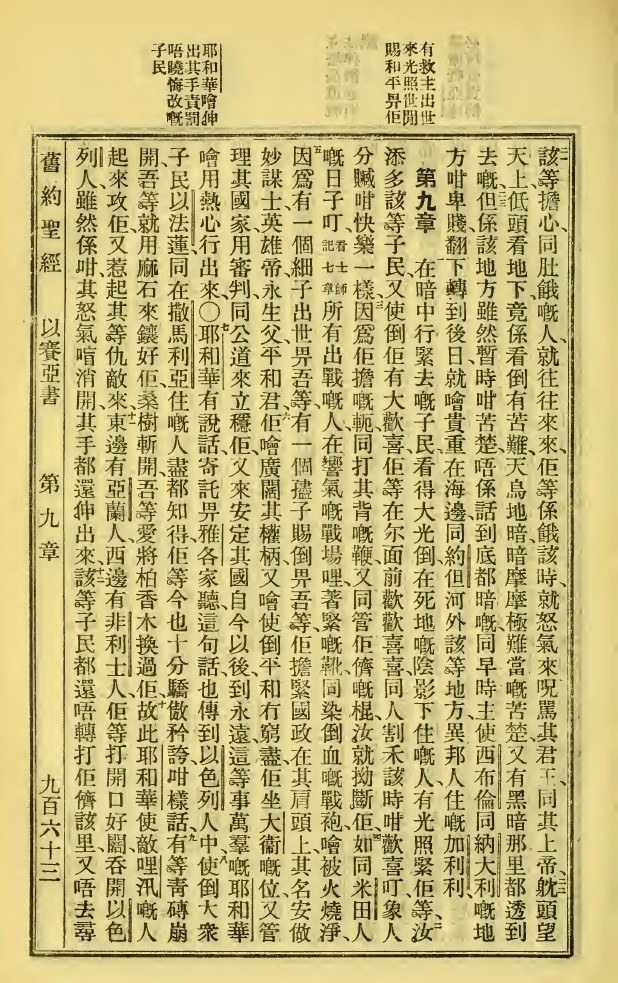 有救主出世
來光照世開
賜和平畀佢
耶和華噲伸
出其手責罰
唔曉悔改嘅
子民
該等擔心同肚餓嘅人、就往往來來、佢等係餓該時、就怒氣來呪罵其君王、同其上帝、躭頭望
天上、低頭看地下、竟係看倒有苦難、天烏地暗、暗摩摩、極難當嘅苦楚、又有黑暗、那里都透到
去嘅、但係該地方雖然暫時咁苦楚、唔係話到底都暗嘅、同早時主使西布倫同納大利嘅地
方咁卑賤、翻下轉到後日、就噲貴重、在海邊、同約但河外、該等地方、異邦人住嘅加利利、
第九章 在暗中行緊去嘅子民、看得大光倒、在死地嘅陰影下住嘅人、有光照緊佢等、汝
添多該等子民、又使倒佢有大歡喜、佢等在尔面前歡歡喜喜、同人割禾該時咁歡喜、叮象人
分贓咁快樂一樣、因爲佢擔嘅軛、同打其背嘅鞭、又同管佢儕嘅棍、汝就拗斷佢、如同米田人
嘅日子叮、看士師記七章 所有出戰嘅人、在響氣嘅戰場哩著緊嘅靴、同染倒血嘅戰砲、噲被火燒淨、
因爲有一個細子出世畀吾等、有一個孻子賜倒畀吾等、佢擔緊國政在其肩頭上、其名安做
妙謀士、英雄帝、永生父、平和君、佢噲廣闊其權柄、又噲使倒平和冇窮盡、佢坐大衞嘅位、又管
理其國家、用審判同公道來立穩佢、又來安定其國、自今以後到永遠、這等事、萬羣嘅耶和華
噲用熱心行出來、〇耶和華有說話寄託畀雅各家聽、這句話也傳到以色列人中、使倒大衆
子民、以法蓮、同在撒馬利亞住嘅人盡都知得、佢等今也十分驕傲矜誇、咁樣話、有等靑磚崩
開、吾等就用麻石來鑲好佢、桑樹斬開、吾等愛將柏香木換過佢、故此耶和華使敵哩汛嘅人
起來攻佢、又惹起其等仇敵來、東邊有亞蘭人、西邊有非利士人、佢等打開口好闊、吞開以色
列人、雖然係咁、其怒氣唔消開、其手都還伸出來、該等子民都還唔轉打佢儕該里、又唔去尋
舊約聖經 以賽亞書 第九章 九百六十三